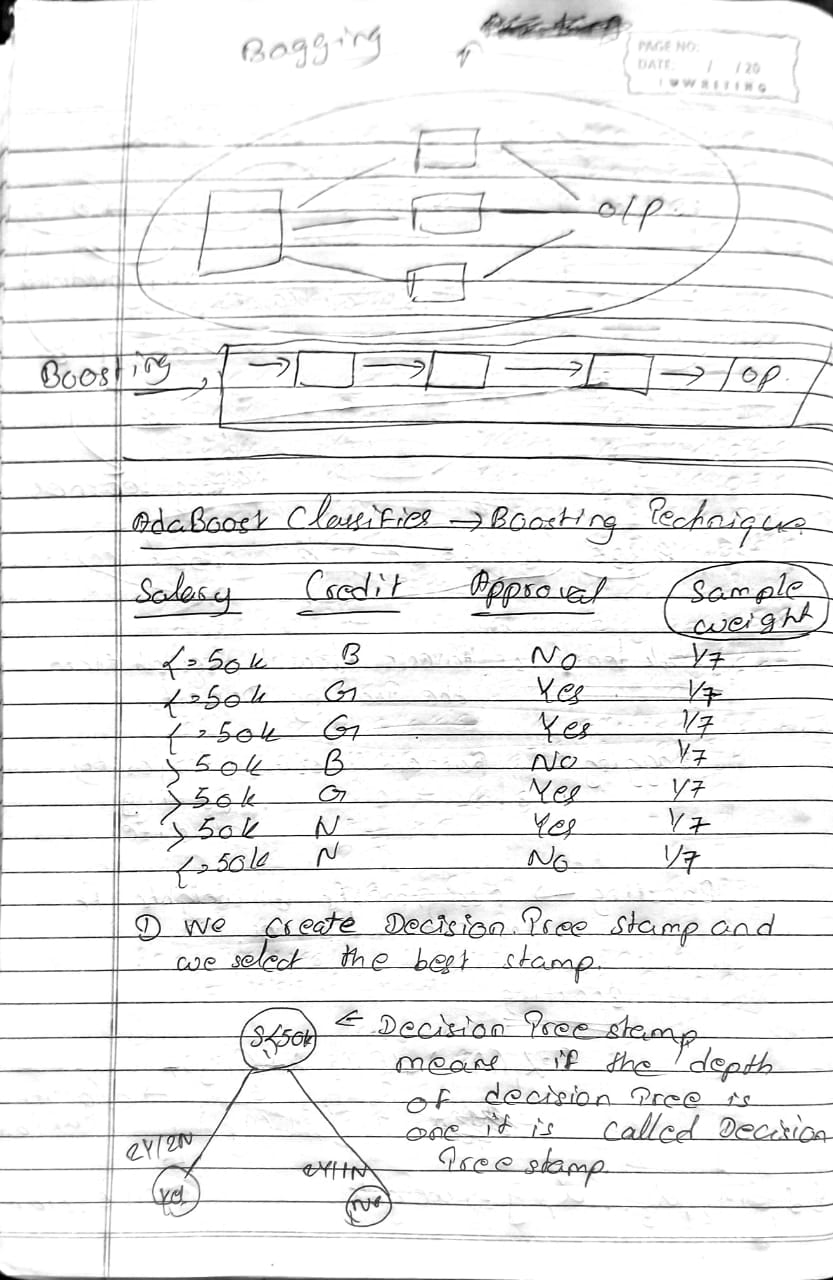 Bagging
PAGE NO:
DATE: / /20
O/P.
Boosting
OP.
AdaBoost Classifier → Boosting Technique
Salary Credit Approval Sample weight
<=50k B No 1/7
<=50k G Yes 1/7
<=50k G Yes 1/7
>50k B No 1/7
>50k G Yes 1/7
>50k N Yes 1/7
<=50k N No 1/7
① We create Decision Tree stamp and
we select the best stamp.
S<50k ← Decision Tree stamp
means if the depth
of decision Tree is
one it is called Decision
Tree stamp.
2Y/2N 2Y/1N
Yes No